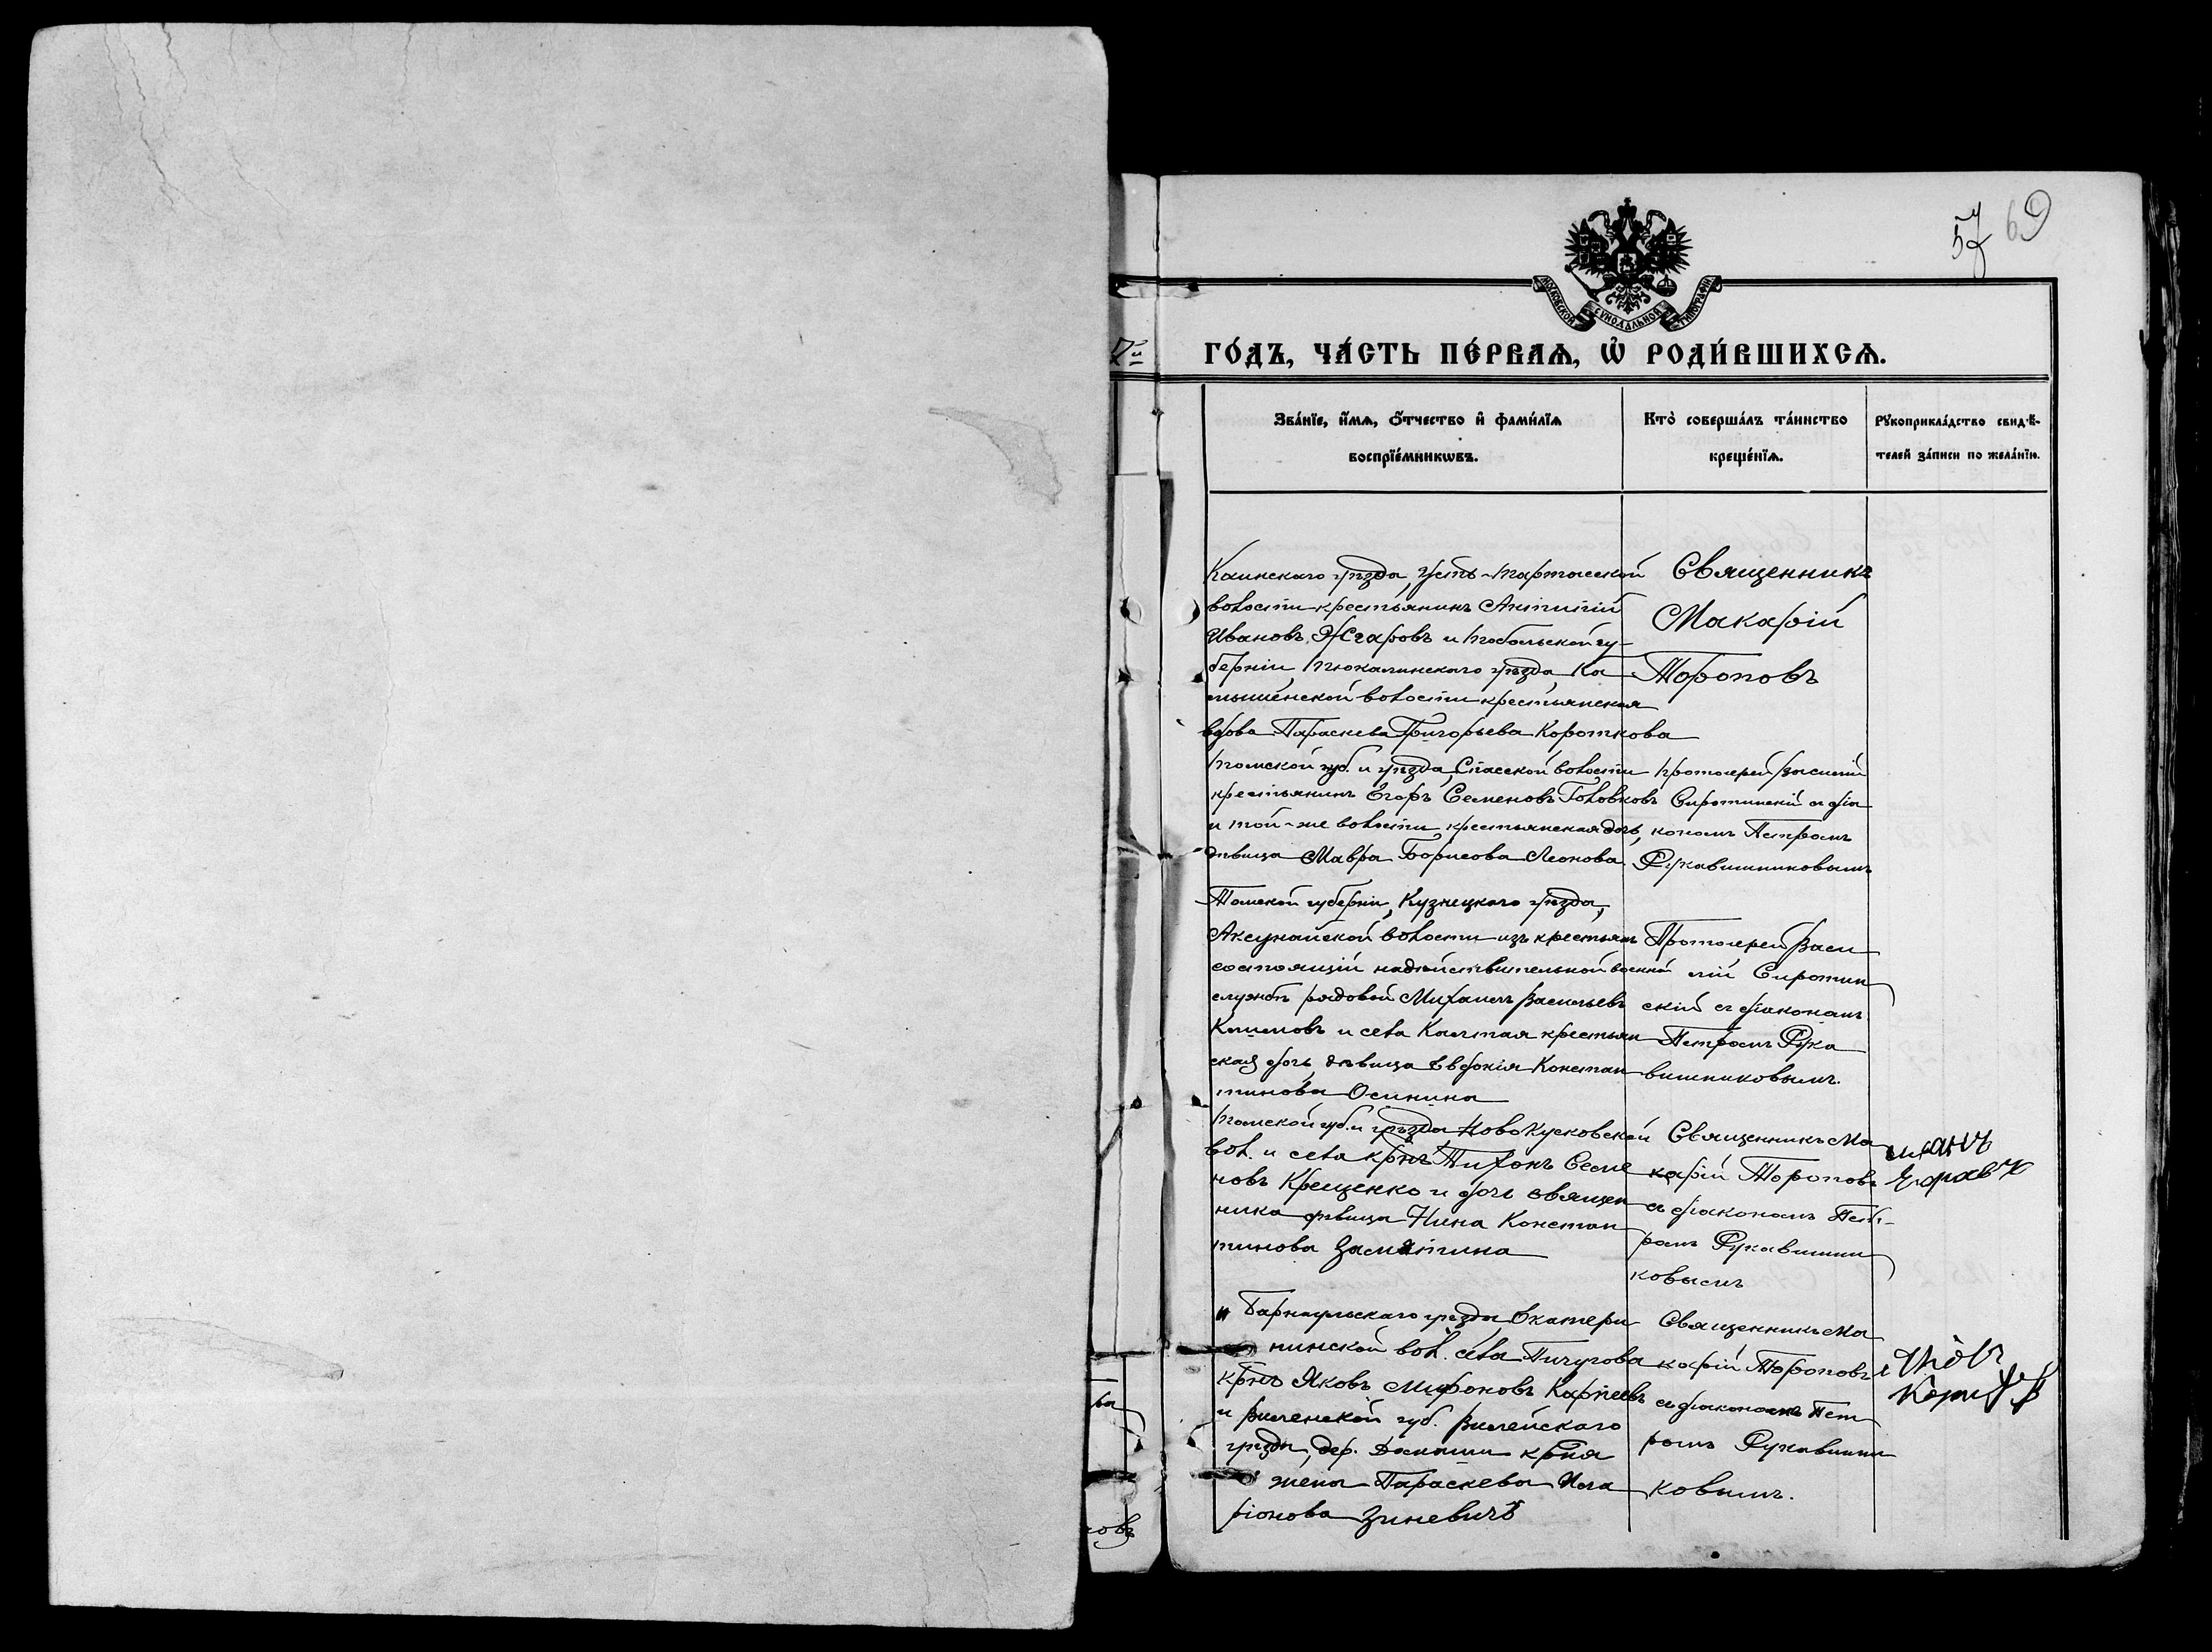 57 69
МОСКОВСКОЙ СУНОДАЛЬНОЙ ТИПОГРАФІИ
ГО́ДЪ, ЧА́СТЬ ПЕ́РВАѦ, Ѡ҆ РОДИ́ВШИХСѦ.
Зва́нїе, и҆́мѧ, ѻ҆́тчество и҆ фами́лїѧ
воспрїе́мникѡвъ.
Кто̀ соверша́лъ та́инство
креще́нїѧ.
Рꙋкоприкла́дство свидѣ́-
телей за́писи по жела́нїю.
Каинскаго уѣзда, Усть-Тартасской
волости крестьянинъ Антипій
Ивановъ Жгаровъ и Тобольской гу-
берніи, Тюкалинскаго уѣзда, Ка
мышенской волости крестьянская
вдова Параскева Григорьева Короткова
Священникъ
Макарій
Тороповъ
Томской губ. и уѣзда, Спасской волости
крестьянинъ Егоръ Семеновъ Головковъ
и той-же волости, крестьянская дочь,
дѣвица Мавра Борисова Леонова.
Протоіерей Василій
Сиротинскій съ діа
кономъ Петромъ
Рукавишниковымъ
Томской губерніи, Кузнецкаго уѣзда,
волости изъ крестьянъ
состоящій на дѣйствительной военной
службѣ рядовой Михаилъ Васильевъ
Климовъ и села Калтая крестьян
ская дочь, дѣвица Евдокія Констан
тинова Осинина
Протоіерей Васи
лій Сиротин
скій съ діакономъ
Петромъ Рука
вишниковымъ.
Томской губ. и уѣзда Ново Кусковской
вол. и села крнъ Тихонъ Семе
новъ Крещенко и дочь священ
ника дѣвица Нина Констан
тинова Замятина
Священникъ Ма
карій Тороповъ
съ діакономъ Пет-
ромъ Рукавишни
ковымъ
Барнаульскаго уѣзда, Екатери
нинской вол. села Пичугова
крнъ Яковъ Мироновъ Карпеевъ
и Виленской губ. Вилейскаго
уѣзда, дер. крня
жена Параскева Ила
ріонова Зиневичъ
Священникъ Ма
карій Тороповъ
съ діакономъ Пет
ромъ Рукавишни
ковымъ.
ра
ковъ